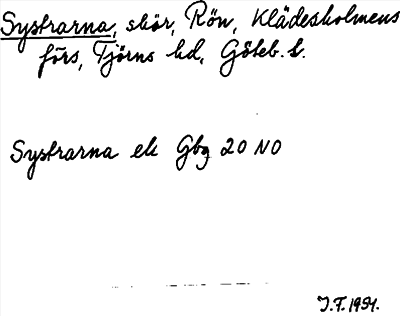 Systrarna, skär, Rön, Klädesholmens
förs, Tjörns hd, Göteb. l.
Systrarna ek Gbg 20 NO
J.F. 1931.